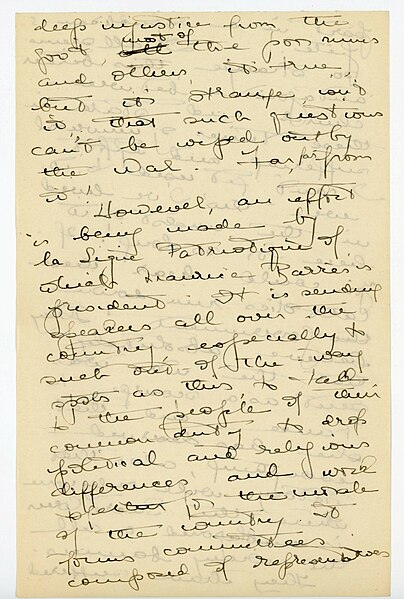 deep injustice from the
gov't, most of the poor nuns
and others, it's true,
but it's strange, isn't
it, that such questions
can't be wiped out by
the War. Far, far from
it! However, an effort
is being made by
la Ligue Patriotique of
which Maurice Barrès is
president. It is sending
speakers all over the
country, especially to
such out of the way
spots as this to talk
to the people of their
common duty to drop
political and religious
differences and work
together for the morale
of the country. It
forms committees
composed of representatives